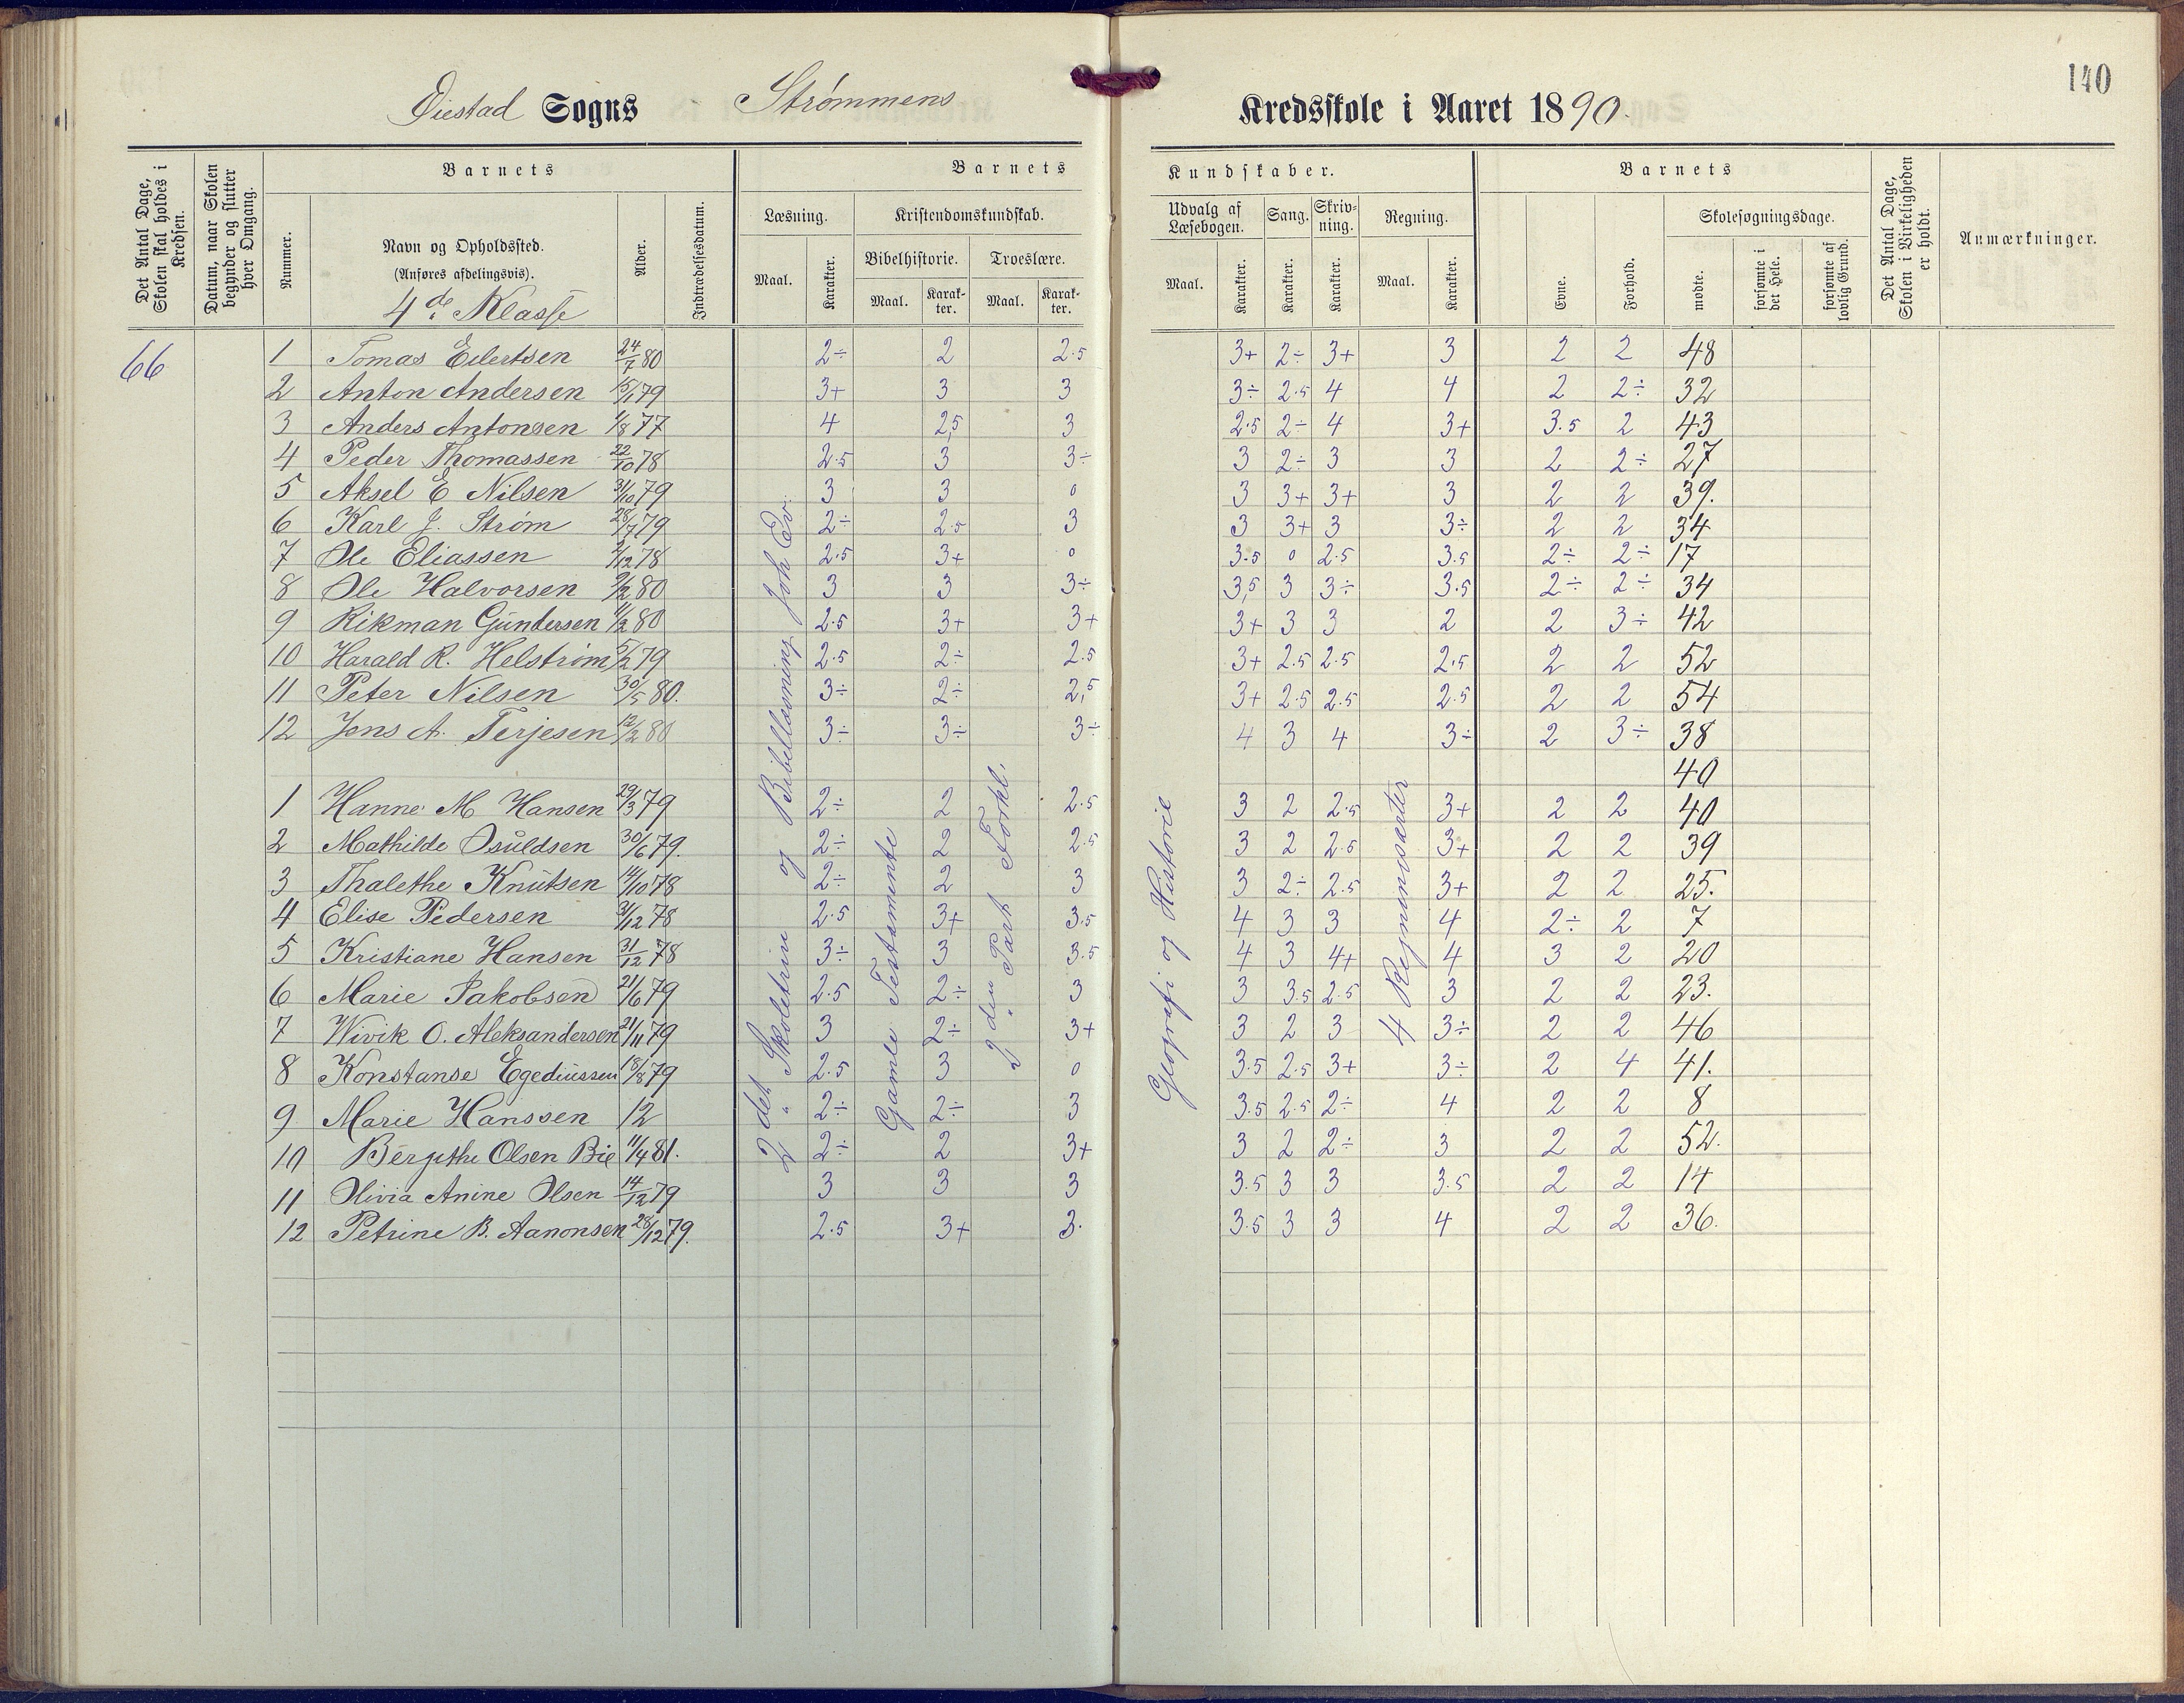 140
Øiestad Sogns Strømmens Kredsskole i Aaret 1890.
Det Antal Dage, Skolen skal holdes i Kredsen.
Datum, naar Skolen begynder og slutter hver Omgang.
Barnets
Nummer.
Navn og Opholdssted.
(Anføres afdelingsvis).
4de Klasse
Alder.
Indtrædelsesdatum.
Barnets Kundskaber.
Læsning.
Maal.
Karakter.
Kristendomskundskab.
Bibelhistorie.
Maal.
Karakter.
Troeslære.
Maal.
Karakter.
Udvalg af Læsebogen.
Maal.
Karakter.
Sang.
Karakter.
Skrivning.
Karakter.
Regning.
Maal.
Karakter.
Barnets
Evne.
Forhold.
Skolesøgningsdage.
mødte.
forsømte i det Hele.
forsømte af lovlig Grund.
Det Antal Dage, Skolen i Virkeligheden er holdt.
Anmærkninger.
66
1 Tomas Eilertsen 24/7 80 2÷ 2 2.5 3+ 2÷ 3+ 3 2 2 48
2 Anton Andersen 15/1 79 3+ 3 3 3÷ 2.5 4 4 2 2÷ 32
3 Anders Antonsen 1/8 77 4 2,5 3 2.5 2÷ 4 3+ 3.5 2 43
4 Peder Thomassen 22/10 78 2.5 3 3÷ 3 2÷ 3 3 2 2÷ 27
5 Aksel E Nilsen 31/10 79 3 3 0 3 3+ 3+ 3 2 2 39.
6 Karl J. Strøm 28/7 79 2÷ 2.5 3 3 3+ 3 3÷ 2 2 34
7 Ole Eliassen 2/12 78 2.5 3+ 0 3.5 0 2.5 3.5 2÷ 2÷ 17
8 Ole Halvorsen 9/2 80 3 3 3÷ 3,5 3 3÷ 3.5 2÷ 2÷ 34
9 Rikman Gundersen 11/2 80 2.5 3+ 3+ 3+ 3 3 2 2 3÷ 42
10 Harald R. Helstrøm 5/2 79 2.5 2÷ 2.5 3+ 2.5 2.5 2.5 2 2 52
11 Peter Nilsen 30/5 80. 3÷ 2÷ 2,5 3+ 2.5 2.5 2.5 2 2 54
12 Jens A. Terjesen 12/2 80 3÷ 3÷ 3÷ 4 3 4 3÷ 2 3÷ 38
40
1 Hanne M Hansen 29/3 79 2÷ 2 2.5 3 2 2.5 3+ 2 2 40
2 Mathilde Osuldsen 30/6 79. 2÷ 2 2.5 3 2 2.5 3+ 2 2 39
3 Thalethe Knutsen 14/10 78 2÷ 2 3 3 2÷ 2.5 3+ 2 2 25.
4 Elise Pedersen 3/12 78 2.5 3+ 3.5 4 3 3 4 2÷ 2 7
5 Kristiane Hansen 31/12 78 3÷ 3 3.5 4 3 4+ 4 3 2 20
6 Marie Jakobsen 21/6 79 2.5 2÷ 3 3 3.5 2.5 3 2 2 23.
7 Wivik O. Aleksandersen 21/11 79 3 2÷ 3+ 3 2 3 3÷ 2 2 46
8 Konstanse Egediussen 18/8 79 2.5 3 0 3.5 2.5 3+ 3÷ 2 4 41.
9 Marie Hanssen 12 2÷ 2÷ 3 3.5 2.5 2÷ 4 2 2 8
10 Bergithe Olsen Bie 11/4 81. 2÷ 2 3+ 3 2 2÷ 3 2 2 52.
11 Olivia Anine Olsen 14/12 79 3 3 3 3.5 3 3 3.5 2 2 14
12 Petrine B. Aanonsen 28/12 79. 2.5 3+ 3. 3.5 3 3 4 2 2 36.
2det Skoletrin og Bibellæsning Joh Ev.
Gamle Testamente
2den Part Forkl.
Geografi og Historie
4 Regningsarter